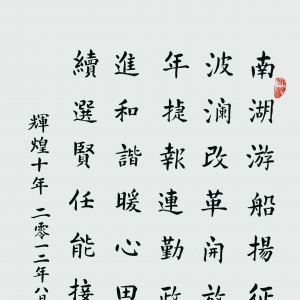 南湖游船揚征
波澜改革開放
年捷報連勤政
進和諧暖心田
續選賢任能接
輝煌十年 二零一二年八月